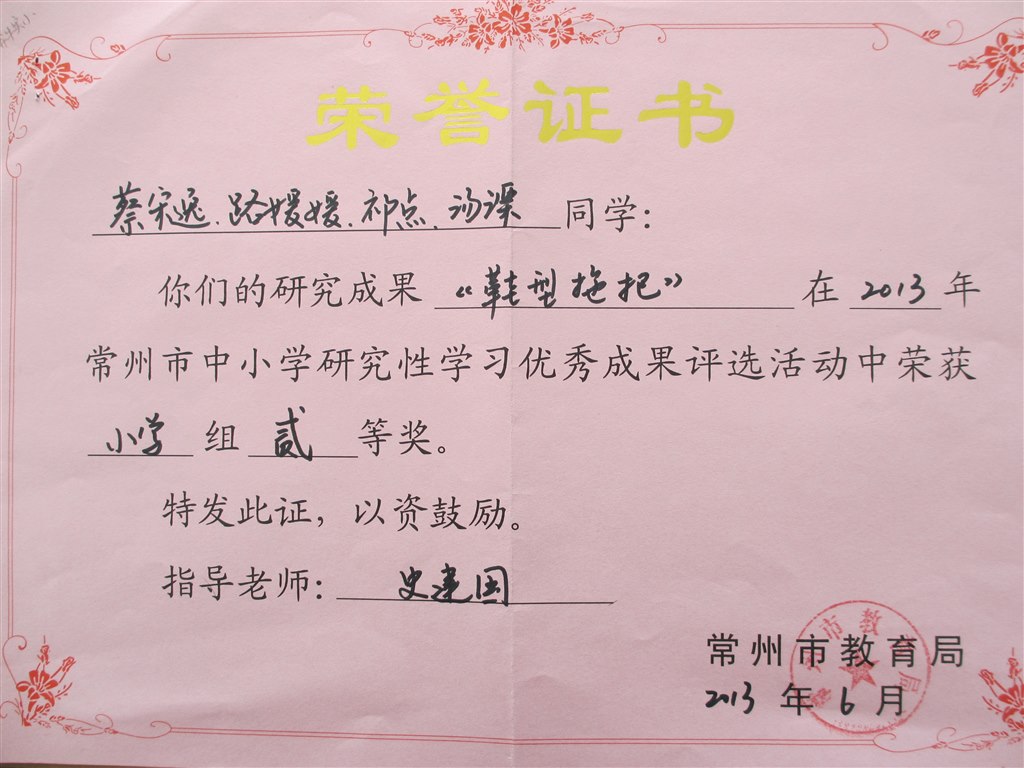 荣誉证书
蔡宋逸、路媛媛、祁点、汤深 同学：
你们的研究成果 “鞋型拖把” 在 2013 年
常州市中小学研究性学习优秀成果评选活动中荣获
小学 组 贰 等奖。
特发此证，以资鼓励。
指导老师： 史建国
常州市教育局
2013 年 6 月